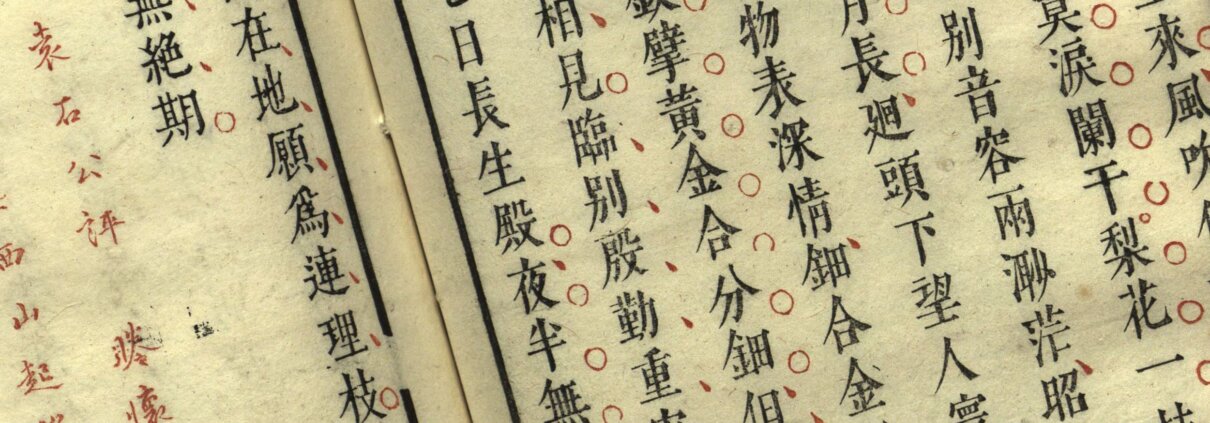 來風吹
寞淚闌干梨花一枝
别音容兩渺茫昭
月長廻頭下望人寰
物表深情鈿合金
釵擘黃金合分鈿但
相見臨别殷勤重
七日長生殿夜半無
在地願爲連理枝
無絶期
袁石公評 勝懷
西山起